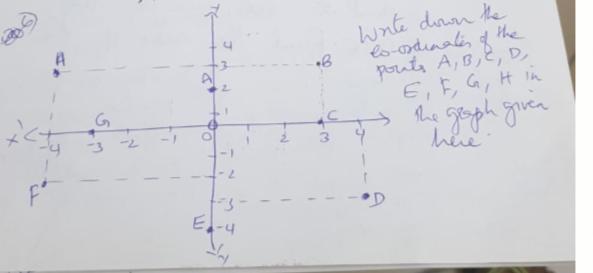 6)
Write down the
co-ordinates of the
points A, B, C, D,
E, F, G, H in
the graph given
here.
Y
4
H
3
B
A
2
1
G
C
X'
-4
-3
-2
-1
0
1
2
3
4
-1
-2
F
-3
D
E
-4
-Y